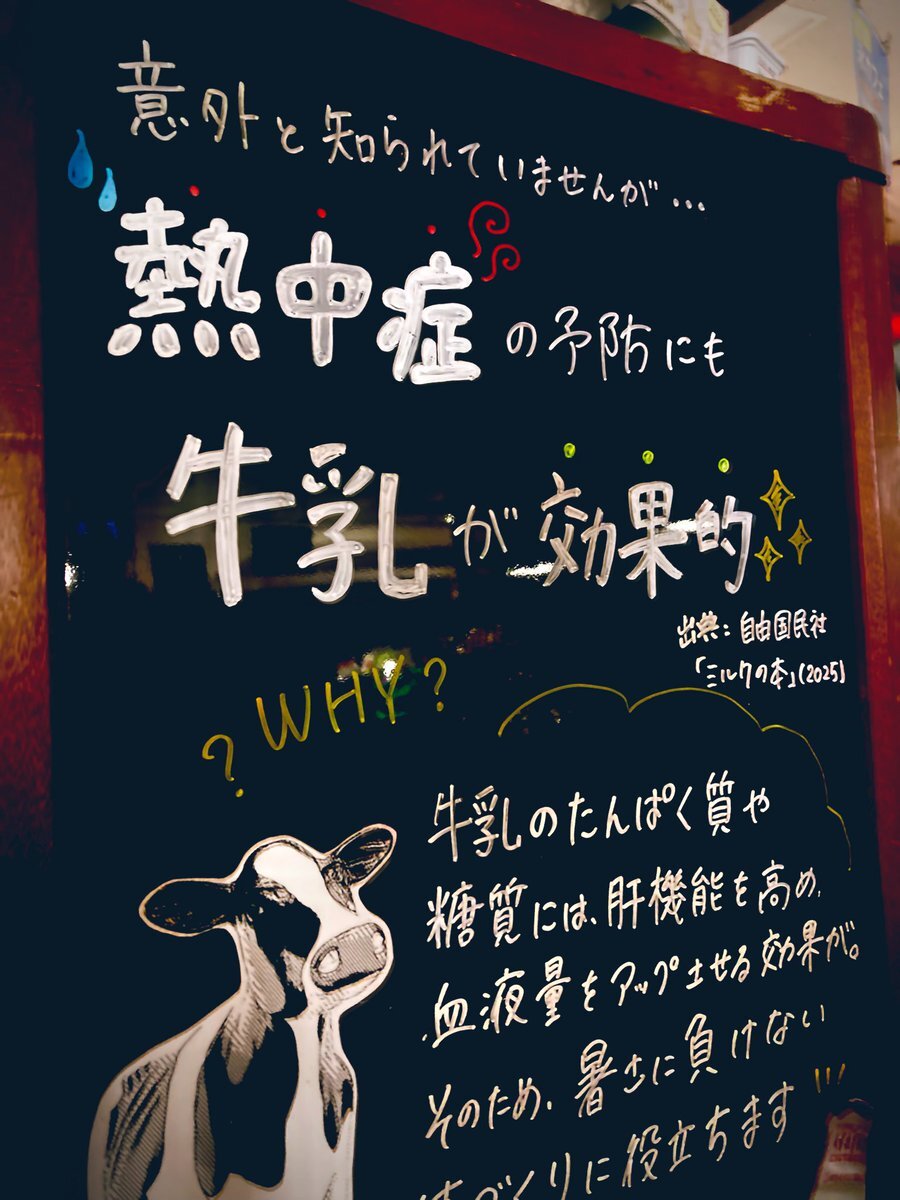 意外と知られていませんが...
熱中症の予防にも
牛乳が効果的
出典：自由国民社
「ミルクの本」(2025)
?WHY?
牛乳のたんぱく質や
糖質には、肝機能を高め、
血液量をアップさせる効果が。
そのため、暑さに負けない
づくりに役立ちます